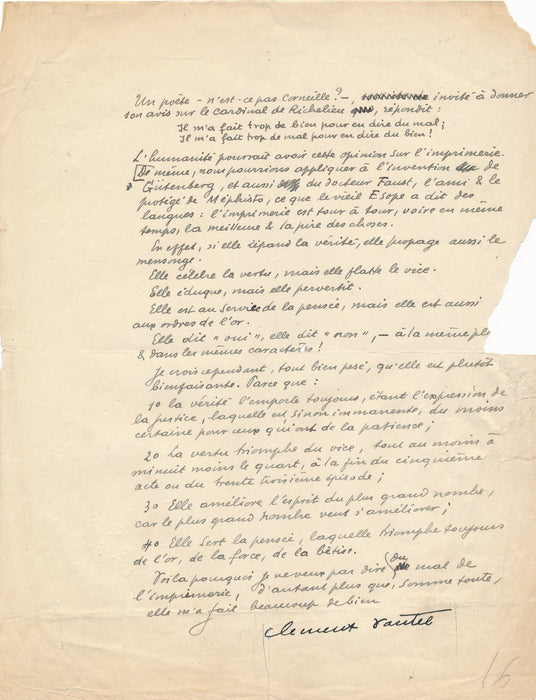 Un poète - n'est-ce pas Corneille ? -, invité à donner
son avis sur le Cardinal de Richelieu, répondit :
Il m'a fait trop de bien pour en dire du mal ;
Il m'a fait trop de mal pour en dire du bien !
L'humanité pourrait avoir cette opinion sur l'imprimerie.
De même, nous pourrions appliquer à l'invention de
Gütenberg, et aussi du docteur Faust, l'ami & le
protégé de Méphisto, ce que le vieil Esope a dit des
langues : l'imprimerie est tour à tour, voire en même
temps, la meilleure & la pire des choses.
En effet, si elle répand la vérité, elle propage aussi le
mensonge.
Elle célèbre la vertu, mais elle flatte le vice.
Elle éduque, mais elle pervertit.
Elle est au service de la pensée, mais elle est aussi
aux ordres de l'or.
Elle dit "oui", elle dit "non", - à la même
& dans les mêmes caractères !
Je crois cependant, tout bien pesé, qu'elle est plutôt
bienfaisante. Parce que :
1o la vérité l'emporte toujours, étant l'expression de
la justice, laquelle est sinon immanente, du moins
certaine pour ceux qui ont de la patience ;
2o La vertu triomphe du vice, tout au moins à
minuit moins le quart, à la fin du cinquième
acte ou du trente troisième épisode ;
3o Elle améliore l'esprit du plus grand nombre,
car le plus grand nombre veut s'améliorer ;
4o Elle sert la pensée, laquelle triomphe toujours
de l'or, de la force, de la bêtise.
Voilà pourquoi je ne veux pas dire du mal de
l'imprimerie, d'autant plus que, somme toute,
elle m'a fait beaucoup de bien
Clément Vautel
16